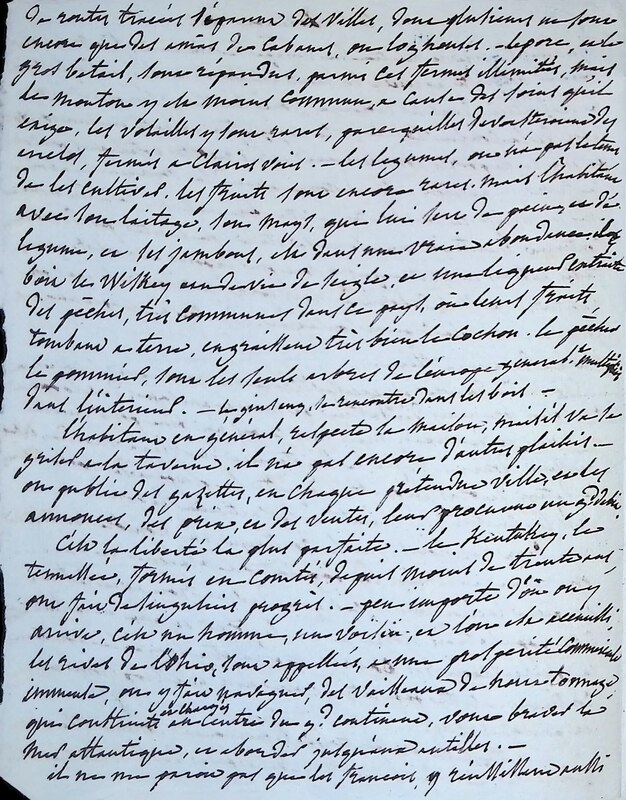 de routes tracés séparent des villes, dont plusieurs ne sont
encore que des amas de cabanes, ou log houses. - le porc, et le
gros betail, sont répandus, parmi ces fermes illimités, mais
le mouton y est moins commun, a cause des soins qu'il
exige, les volailles y sont rares, parce qu'elles devastent
enclos, fermés a claire voie. - les legumes, on n'a pas le tems
de les cultiver, les fruits sont encore rares. mais l'habitant
avec son laitage, son mays, qui lui sert de pain, et de
legume, et ses jambons, est dans une vraie abondance, il
boit le Wiskey eau de vie de seigle, et une liqueur extraite
des pêches, très communes dans ce pays, où leurs fruits
tombant a terre, engraissent très bien le cochon. le pêcher
le pommier, sont les seuls arbres de l'europe general.t multipliés
dans l'interieur. - le ginseng, se rencontre dans les bois -
l'habitant en général, respecte la maison, mais il va se
griser a la taverne, il n'a pas encore d'autres plaisirs. -
on publie des gazettes, en chaque prétendue ville, et les
annonces, des prix, et des ventes, leur procurent un gd debit
C'est la liberté la plus parfaite. - le Kentukey, le
tennessée, formés en comtés, depuis moins de trente ans
ont fait de singuliers progrès. - peu importe d'où on y
arrive, c'est un homme, un voisin, et l'on est accueilli
les rives de l'Ohio, sont appellées, a une prosperité commerciale
immense, on y fait naviguer, des vaisseaux de tonnage
qui construits et chargés au centre du gd continent, vont braver la
mer atlantique, et aborder jusqu'aux antilles. -
il ne me paroit pas que les francois, y réussissent aussi